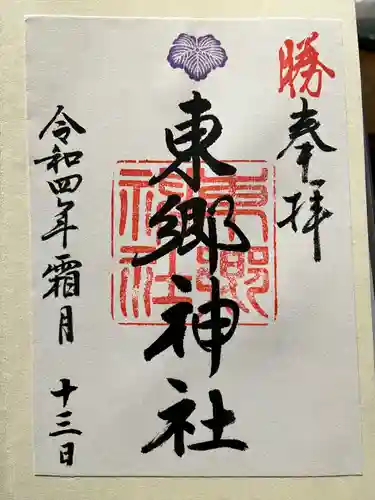 勝
奉拝
東郷神社
東郷神社
令和四年霜月 十三日